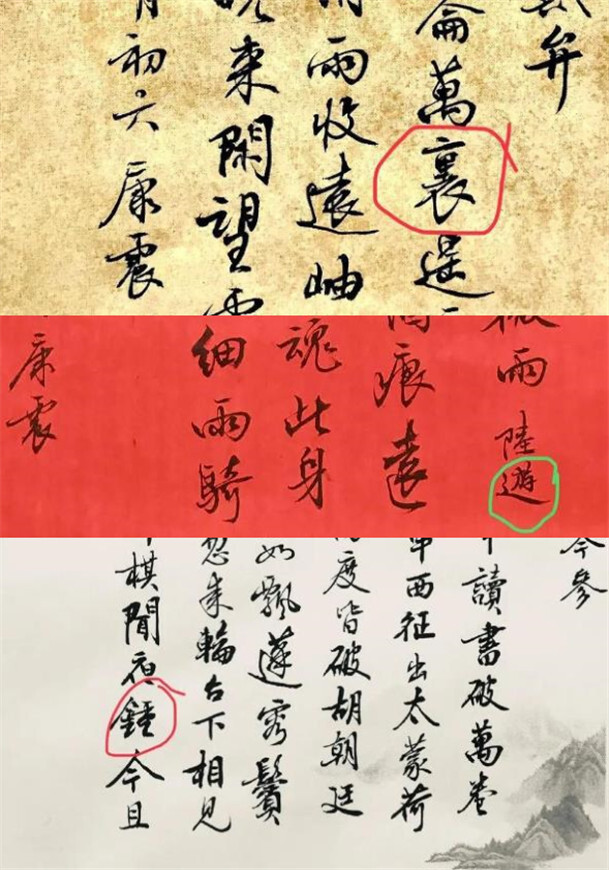 弁
萬裏
雨收遠岫
来閑望
初六康震
雨陸遊
痕遠
魂此身
細雨騎
康震
參
讀書破萬卷
西征出太蒙荷
度皆破胡朝廷
如飄蓬秀鬢
忽来輪台下相見
棋聞夜鍾今且